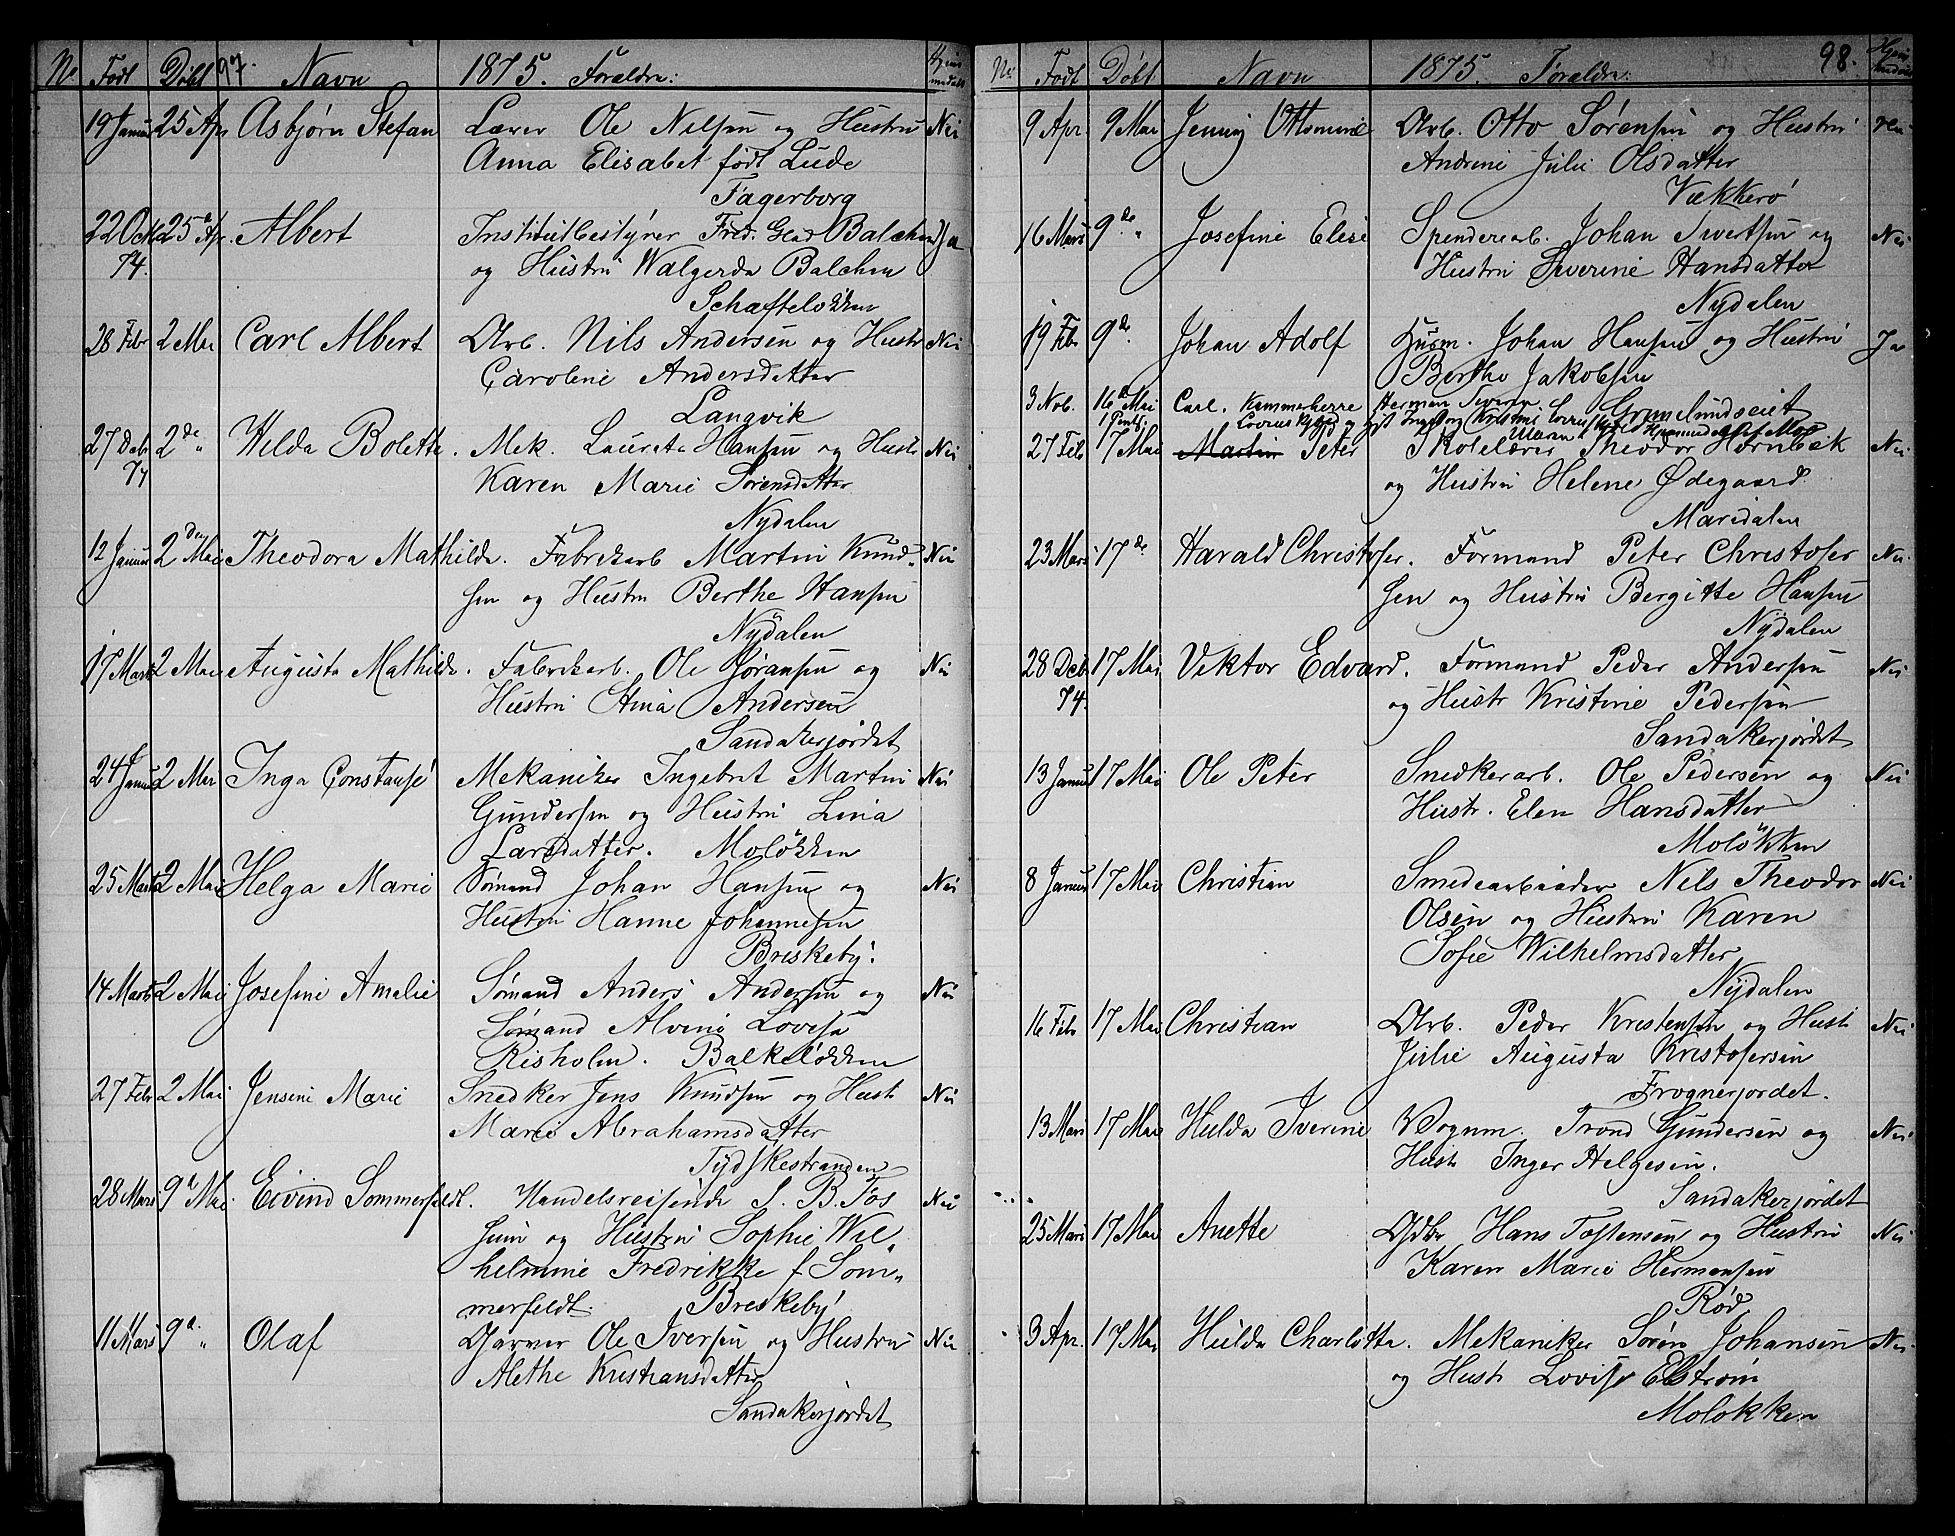 No Født Døbt 97. Navn 1875. Forældre:
19 Januar 25 Apr Asbjørn Stefan Lærer Ole Nilsen og Hustru Nei
Anna Elisabet født Lude
Fagerborg
22 Oct 25 Apr. Albert Institutbestyrer Fred. Glad Balchen Ja
74. og Hustru Walgerda Balchen
Schafteløkken
28 Febr 2 Mai Carl Albert Arb. Nils Andersen og Hustr Nei
Caroline Andersdatter
Langvik
27 Deb 2de " Hilda Bolette. Mek. Laurets Hansen og Hustr Nei
74 Karen Marie Sørensdatter
Nydalen
12 Januar 2den Mai Theodora Mathilde. Fabrikarb Martin Knud- Nei
sen og Hustru Berthe Hansen
Nydalen
17 Marts 2 Mai Augusta Mathilde. Fabrikarb. Ole Gøransen og Nei
Hustru Andersen
Sandakerjordet
24 Januar 2 Mai Inga Constanse Mekaniker Ingebret Martin Nei
Gundersen og Hustru Lina
Larsdatter. Moløkken
25 Marts 2 Mai Helga Marie Sømand Johan Hansen og Nei
Hustru Hanne Johannesen
Briskeby.
14 Marts 2 Mai Josefine Amalie Sømand Anders Andersen og Nei
Sømand Alvine Lovisa
Risholm. Balkeløkken
27 Febr 2 Mai Jensine Marie Snedker Jens Knudsen og Hust Nei
Marie Abrahamsdatter
Tydskestranden
28 Mars 9d Mai. Eivind Sommerfeldt. Handelsreisende S. B. Fos Nei
sum og Hustru Sophie Wil-
helmine Fredrikke f Som-
merfeldt. Breskeby
11 Mars 9d. " Olaf Garver Ole Iversen og Hustru Nei
Alethe Kristiansdatter
Sandakerjordet
No. Født Døbt Navn 1875. Forældre: 98.
9 Apr. 9 Mai Jenny Ottomine Arb. Otto Sørensen og Hustru Nei
Andrine Julie Olsdatter
Vækkerø
16 Mars 9de " Josefine Elise Spenderiarb. Johan Sivertsen og Nei
Hustru Severine Hansdatter
Nydalen
19 Febr 9de. Johan Adolf Husm. Johan Hansen og Hustru Ja
Berthe Jakobsen
Grimelundseiet
3 Nob. 16d Mai Carl. Kammeherre Herman Severin
1 Pints. Løvenskjold og
27 Feb 17 Mai Martin Peter Skolelærer Theodor Hornbek Nei
og Hustru Helene Ødegaard.
Maridalen
23 Mars 17de Harald Christofer. Formand Peter Christofer Nei
sen og Hustru Bergitte Hansen
Nydalen
28 Deb 17 Mai Viktor Edvard. Formand Peder Andersen Nei
74. og Hustr Kristine Pedersen
Sandakerjordet
13 Januar 17 Mai Ole Peter Snedkerarb. Ole Pedersen og Nei
Hustr. Elen Hansdatter
Moløkken
8 Januar 17 Mai Christian Smedearbeider Nels Theodor Nei
Olsen og Hustru Karen
Sofie Wilhelmsdatter
Nydalen
16 Febr 17 Mai Christian Arb. Peder Kristensen og Hust Nei
Julie Augusta Kristofersen
Frognerjordet.
13 Mars 17 Mai Hulda Iverine Vognm. Trond Gundersen og Nei
Hust Inger Helgesen.
Sandakerjordet
25 Mars 17 Mai Anette Gdbr Hans Tostensen og Hustru Nei
Karen Marie Hermansen
Rød
3 Apr. 17 Mai Hulda Charlotte. Mekaniker Søren Johansen Nei
og Hust Lovise Elstrøm
Moløkken